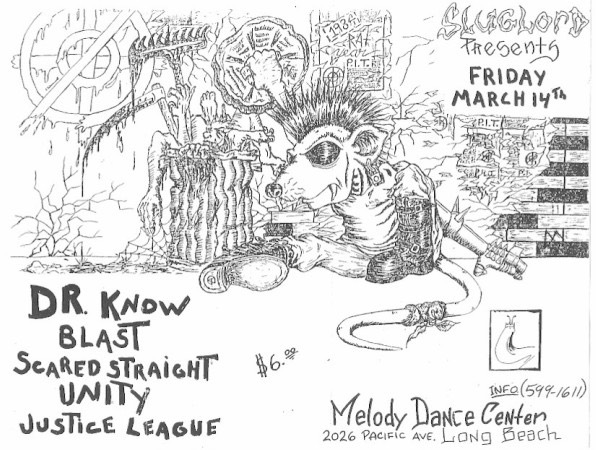 SLUGLORD
Presents
FRIDAY
MARCH 14TH
1984
RAT
P.I.T.
P.I.T.
DR. KNOW
BLAST
SCARED STRAIGHT
UNITY
JUSTICE LEAGUE
$6.00
INFO (599-1611)
Melody Dance Center
2026 PACIFIC AVE. Long Beach